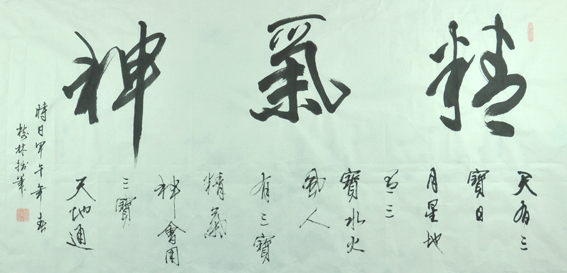 精氣神
天有三
寶日
月星地
有三
寶水火
風人
有三寶
精氣
神會用
三寶
天地通
時日甲午年春
林拙筆